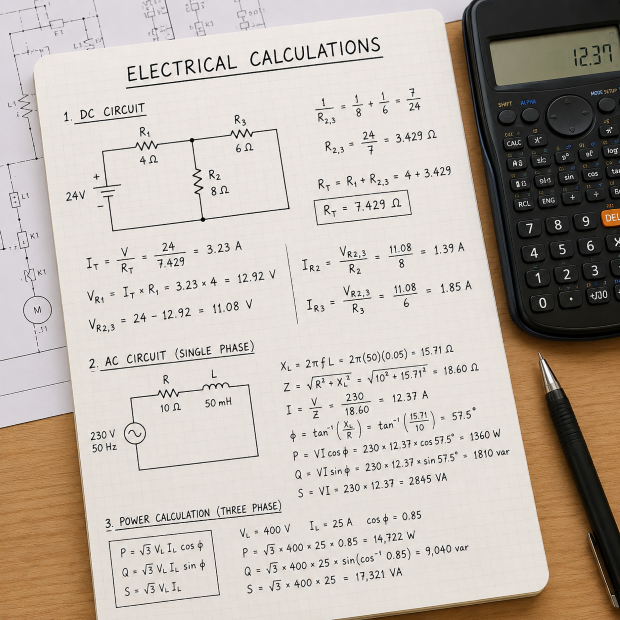 ELECTRICAL CALCULATIONS
1. DC CIRCUIT
R₁
4 Ω
R₃
6 Ω
24V
+
−
R₂
8 Ω
1/R₂,₃ = 1/8 + 1/6 = 7/24
R₂,₃ = 24/7 = 3.429 Ω
R_T = R₁ + R₂,₃ = 4 + 3.429
R_T = 7.429 Ω
I_T = V/R_T = 24/7.429 = 3.23 A
V_R1 = I_T × R₁ = 3.23 × 4 = 12.92 V
V_R2,3 = 24 − 12.92 = 11.08 V
I_R2 = V_R2,3/R₂ = 11.08/8 = 1.39 A
I_R3 = V_R2,3/R₃ = 11.08/6 = 1.85 A
2. AC CIRCUIT (SINGLE PHASE)
R
10 Ω
L
50 mH
230 V
50 Hz
X_L = 2πfL = 2π(50)(0.05) = 15.71 Ω
Z = √(R² + X_L²) = √(10² + 15.71²) = 18.60 Ω
I = V/Z = 230/18.60 = 12.37 A
ϕ = tan⁻¹(X_L/R) = tan⁻¹(15.71/10) = 57.5°
P = VI cos ϕ = 230 × 12.37 × cos 57.5° = 1360 W
Q = VI sin ϕ = 230 × 12.37 × sin 57.5° = 1810 var
S = VI = 230 × 12.37 = 2845 VA
3. POWER CALCULATION (THREE PHASE)
P = √3 V_L I_L cos ϕ
Q = √3 V_L I_L sin ϕ
S = √3 V_L I_L
V_L = 400 V I_L = 25 A cos ϕ = 0.85
P = √3 × 400 × 25 × 0.85 = 14,722 W
Q = √3 × 400 × 25 × sin(cos⁻¹ 0.85) = 9,040 var
S = √3 × 400 × 25 = 17,321 VA
12.37
SHIFT ALPHA
MODE SETUP
CALC
sin cos tan
RCL ENG
7 8 9 DEL
4 5 6
1 2 3
0 ·
L1
K1
K1
M